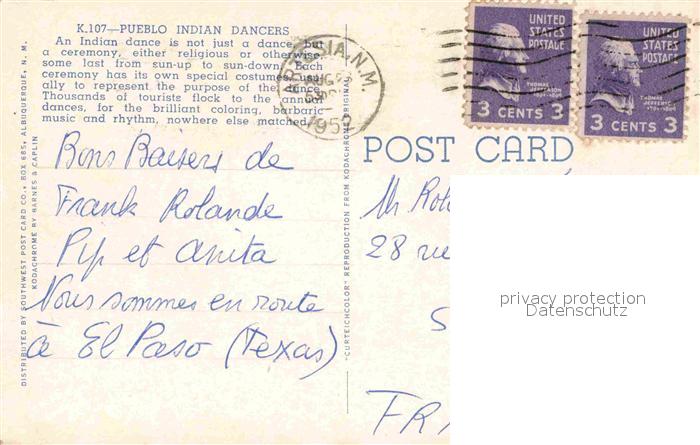 K.107—PUEBLO INDIAN DANCERS
An Indian dance is not just a dance, but
a ceremony, either religious or otherwise,
some last from sun-up to sun-down. Each
ceremony has its own special costumes, usu-
ally to represent the purpose of the dance.
Thousands of tourists flock to the annual
dances, for the brilliant coloring, barbaric
music and rhythm, nowhere else matched.
DISTRIBUTED BY SOUTHWEST POST CARD CO., BOX 685, ALBUQUERQUE, N. M.
KODACHROME BY BARNES & CAPLIN
Bons Baisers de
Frank Rolande
Pip et Anita
Nous sommes en route
à El Paso (Texas)
"CURTEICHCOLOR" REPRODUCTION FROM KODACHROME ORIGINAL
N.M.
AUG
1952
UNITED
STATES
POSTAGE
THOMAS
JEFFERSON
3 CENTS 3
UNITED
STATES
POSTAGE
THOMAS
JEFFERSON
3 CENTS 3
POST CARD
Mr
28 rue
S
FRA
privacy protection
Datenschutz